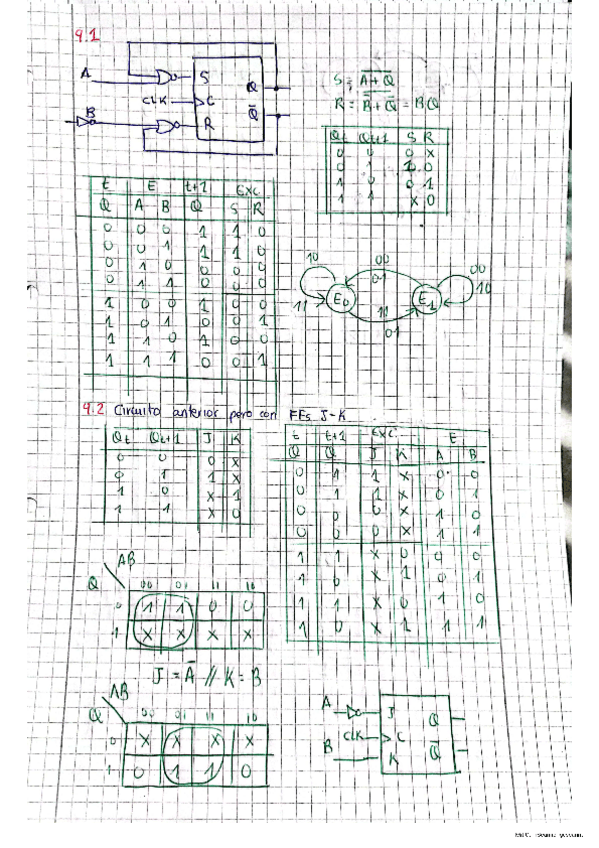 4.1
A
S
Q
CLK
C
B
R
Q̄
S = \overline{A+Q}
R = \overline{B̄+Q̄} = BQ
Qt Qt+1 S R
0 0 0 X
0 1 1 0
1 0 0 1
1 1 X 0
t E t+1 EXC.
Q A B Q S R
0 0 0 1 1 0
0 0 1 1 1 0
0 1 0 0 0 0
0 1 1 0 0 0
1 0 0 1 0 0
1 0 1 0 0 1
1 1 0 1 0 0
1 1 1 0 0 1
10
00
01
00
10
E0
E1
11
11
01
4.2 Circuito anterior pero con FFs J-K
Qt Qt+1 J K
0 0 0 X
0 1 1 X
1 0 X 1
1 1 X 0
t t+1 EXC. E
Q Q J K A B
0 1 1 X 0 0
0 1 1 X 0 1
0 0 0 X 1 0
0 0 0 X 1 1
1 1 X 0 0 0
1 0 X 1 0 1
1 1 X 0 1 0
1 0 X 1 1 1
AB
Q 00 01 11 10
0 1 1 0 0
1 X X X X
J = Ā // K = B
AB
Q 00 01 11 10
0 X X X X
1 0 1 1 0
A
J
Q
CLK
C
B
K
Q̄